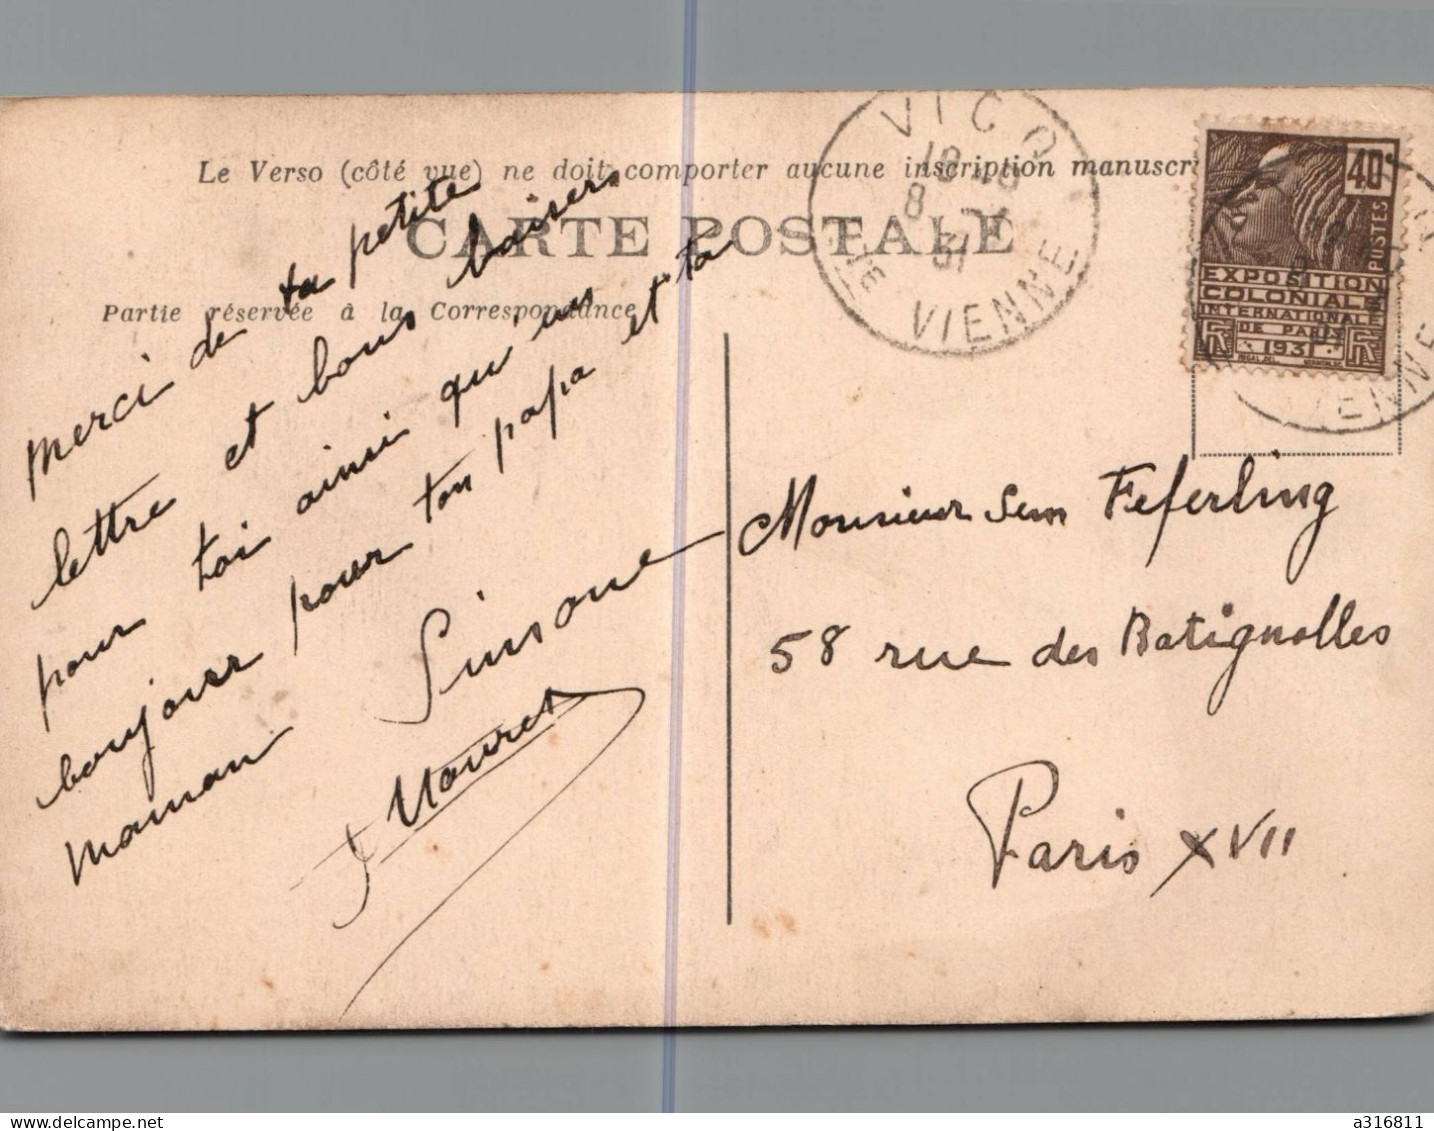 Le Verso (côté vue) ne doit comporter aucune inscription manuscri
CARTE POSTALE
Partie réservée à la Correspondance
merci de ta petite
lettre et bons baisers
pour toi ainsi qu'un
bonjour pour ton papa et ta
maman
Simone
VICQ
18
8
31
HTE VIENNE
40
POSTES
EXPOSITION
COLONIALE
INTERNATIONALE
DE PARIS
RF 1931 RF
VIENNE
Monsieur Sem Feferling
58 rue des Batignolles
Paris XVII
a316811
delcampe.net